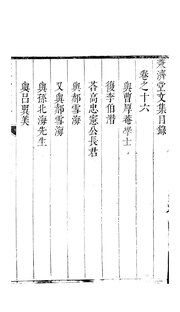 兼濟堂文集目錄
卷之十六
與曹厚菴學士
復李伯潛
荅高忠憲公長君
與郝雪海
又與郝雪海
與孫北海先生
與呂翼美